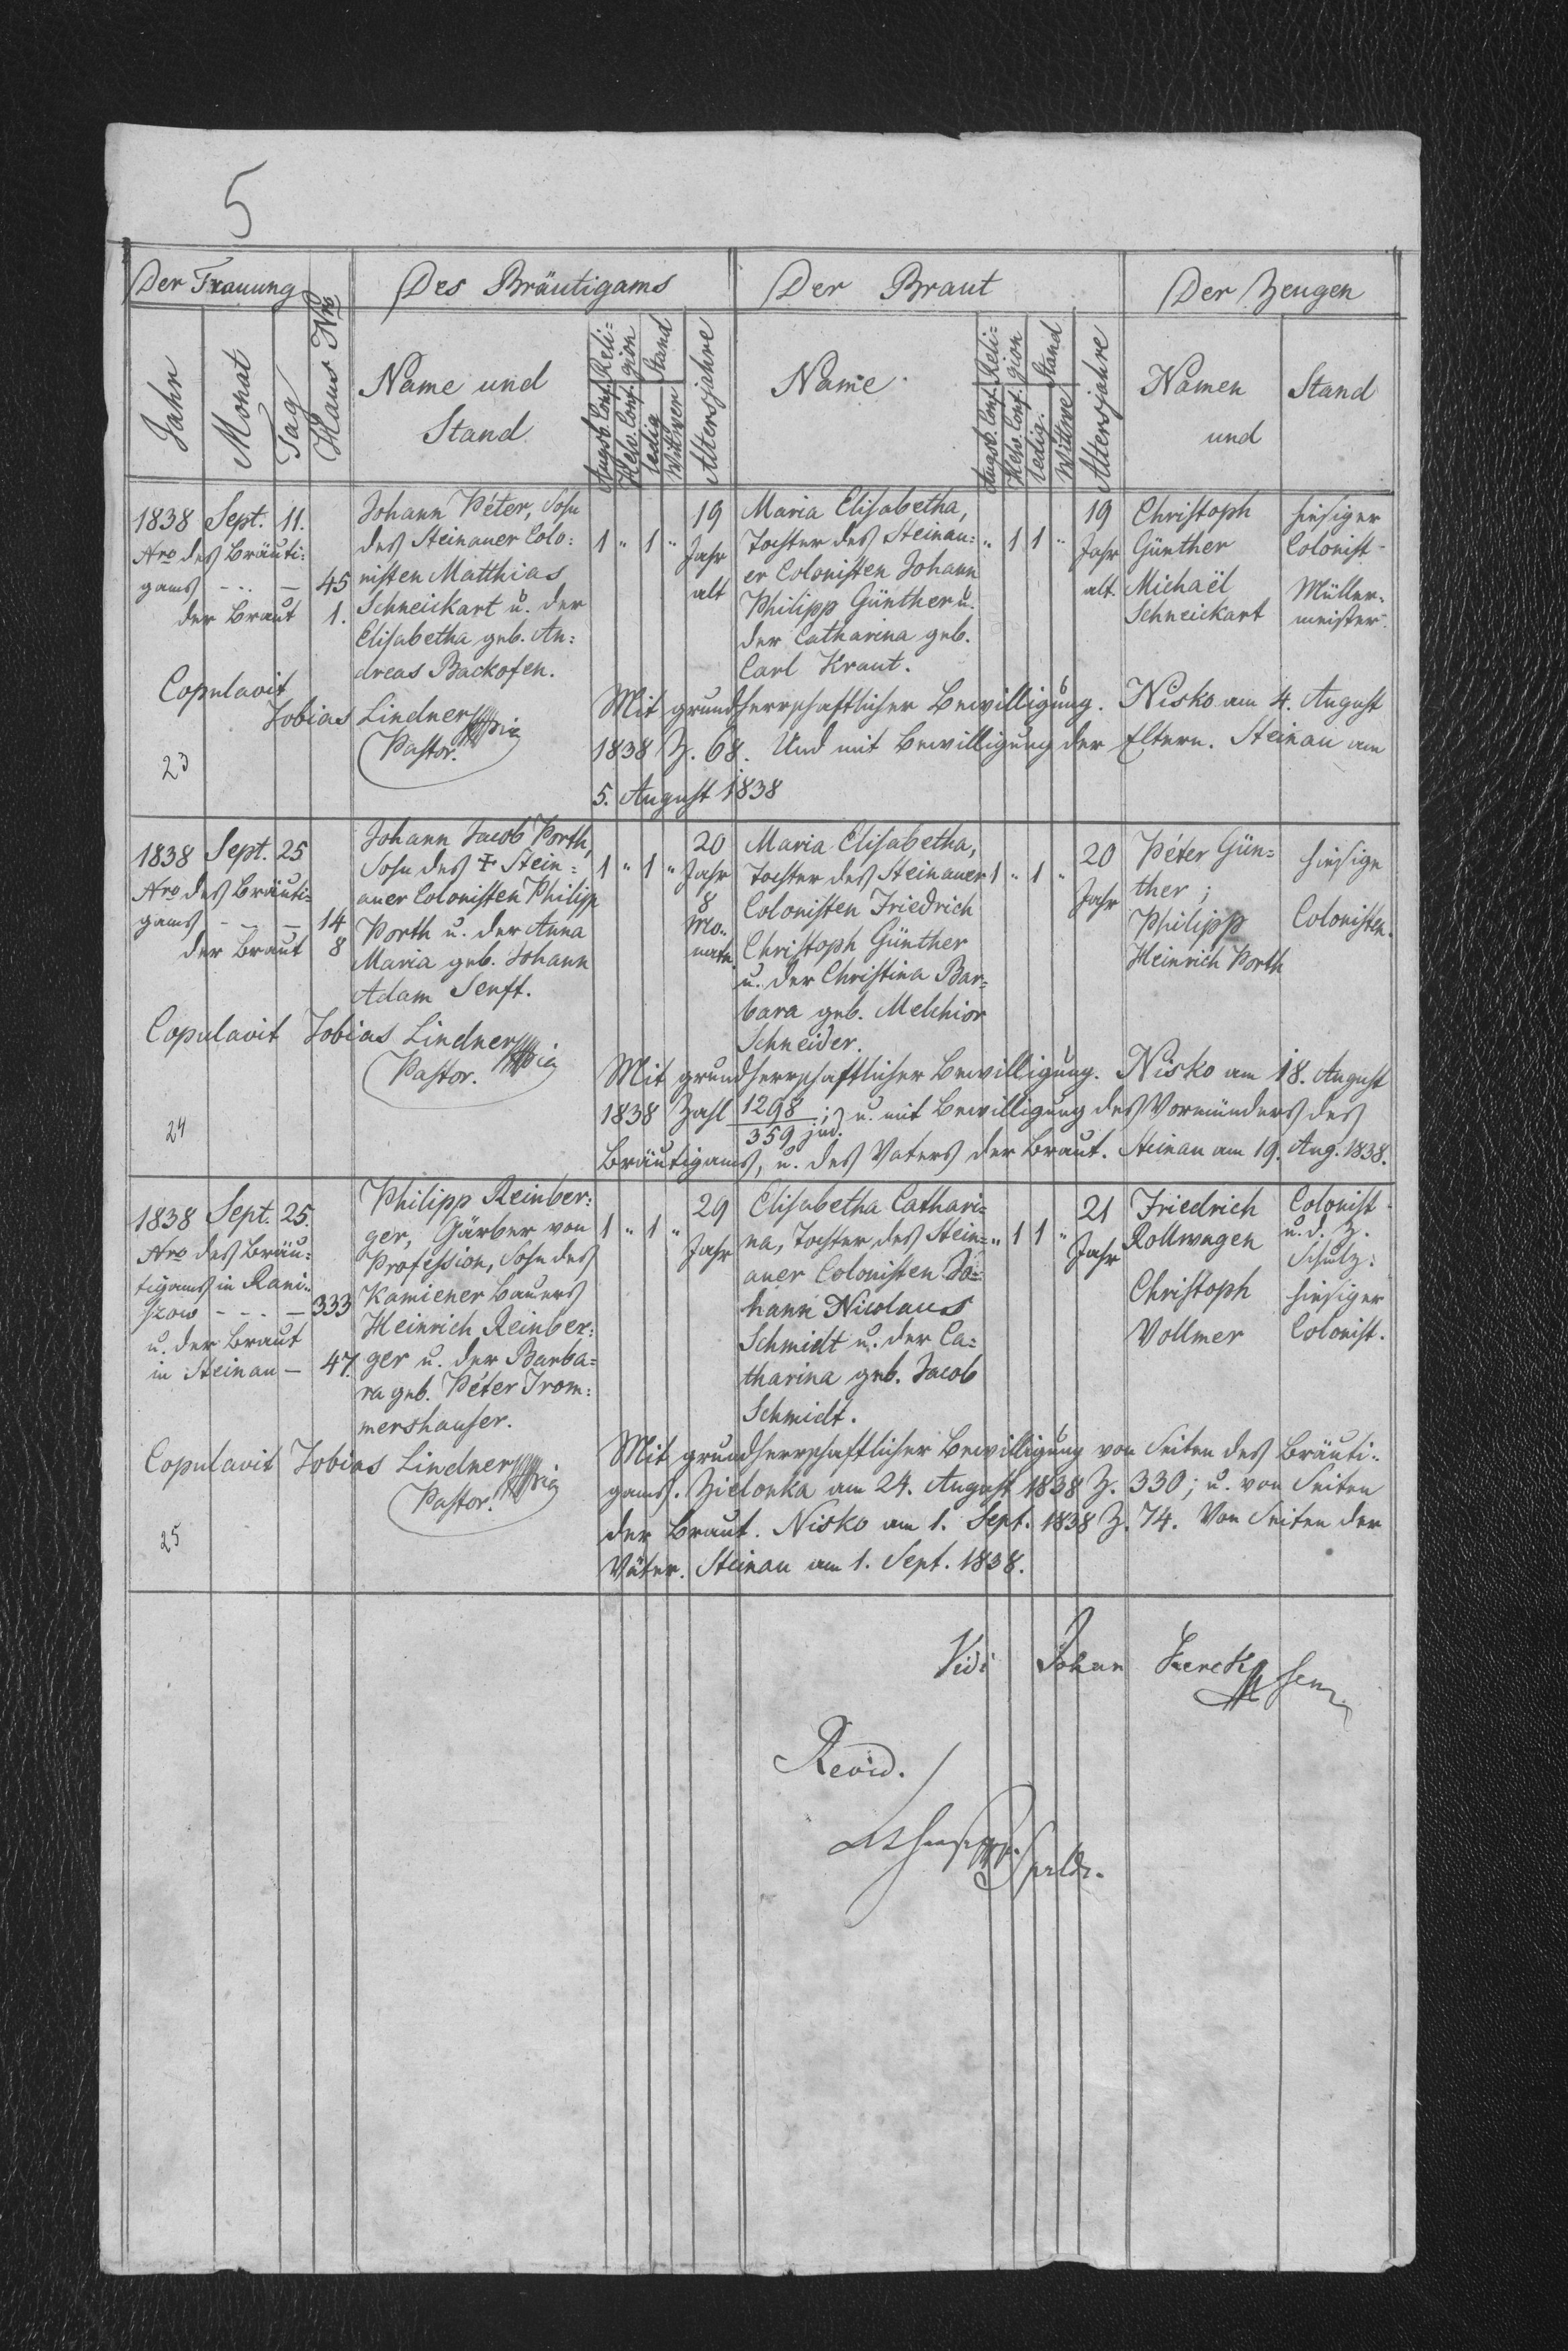 5
Der Trauung
Des Bräutigams
Der Braut
Der Zeugen
Jahr
Monat
Tag
Haus Nro
Name und
Stand
Reli=
gion
Augsb. Conf.
Helv. Conf.
Stand
ledig
Wittwer
Altersjahre
Name
Reli=
gion
Augsb. Conf.
Helv. Conf.
Stand
ledig.
Wittwe
Altersjahre
Namen
und
Stand
1838 Sept. 11.
Nro des Bräuti=
gams - - - 45
der Braut 1.
Johann Péter, Sohn
des Steinauer Colo=
nisten Matthias
Schneickart u. der
Elisabetha geb. An=
dreas Backofen.
1 " 1 "
19
Jahr
alt
Maria Elisabetha,
Tochter des Steinau=
er Colonisten Johann
Philipp Günther u.
der Catharina geb.
Carl Kraut.
" 1 1 "
19
Jahr
alt.
Christoph
Günther
Michaël
Schneickart
hiesiger
Colonist
Müller-
meister
Copulavit
Tobias Lindner
Pastor.
23
Mit grundherrschaftlicher Bewilligung. Nisko am 4. August
1838 Z. 68. Und mit Bewilligung der Eltern. Steinau am
5. August 1838
1838 Sept. 25
Nro des Bräuti=
gams - - - 14
der Braut 8
Johann Jacob Porth,
Sohn des ‡ Stein=
auer Colonisten Philipp
Porth u. der Anna
Maria geb. Johann
Adam Senft.
1 " 1 "
20
Jahr
8
Mo-
nate.
Maria Elisabetha,
Tochter des Steinauer
Colonisten Friedrich
Christoph Günther
u. der Christina Bar=
bara geb. Melchior
Schneider.
1 " 1 "
20
Jahr
Péter Gün=
ther;
Philipp
Heinrich Porth
hiesige
Colonisten.
Copulavit Tobias Lindner
Pastor.
24
Mit grundherrschaftlicher Bewilligung. Nisko am 18. August
1838 Zahl 1298/359 jud.; u. mit Bewilligung des Vormünders des
Bräutigams, u. des Vaters der Braut. Steinau am 19. Aug. 1838.
1838 Sept. 25.
Nro des Bräu=
tigams in Rani=
szow - - - 333
u. der Braut
in Steinau - 47.
Philipp Reinber=
ger, Gärber von
Profession, Sohn des
Kamiener Bauers
Heinrich Reinber=
ger u. der Barba=
ra geb. Péter Trom=
mershauser.
1 " 1 "
29
Jahr
Elisabetha Cathari=
na, Tochter des Stein=
auer Colonisten Jo=
hann Nicolaus
Schmidt u. der Ca=
tharina geb. Jacob
Schmidt.
" 1 1 "
21
Jahr
Friedrich
Rollwagen
Christoph
Vollmer
Colonist
u. d. Z.
Schulz.
hiesiger
Colonist.
Copulavit Tobias Lindner
Pastor.
25
Mit grundherrschaftlicher Bewilligung von Seiten des Bräuti=
gams. Zielonka am 24. August 1838 Z. 330; u. von Seiten
der Braut. Nisko am 1. Sept. 1838 Z. 74. Von Seiten der
Väter. Steinau am 1. Sept. 1838.
Vidi Johan
Revid.